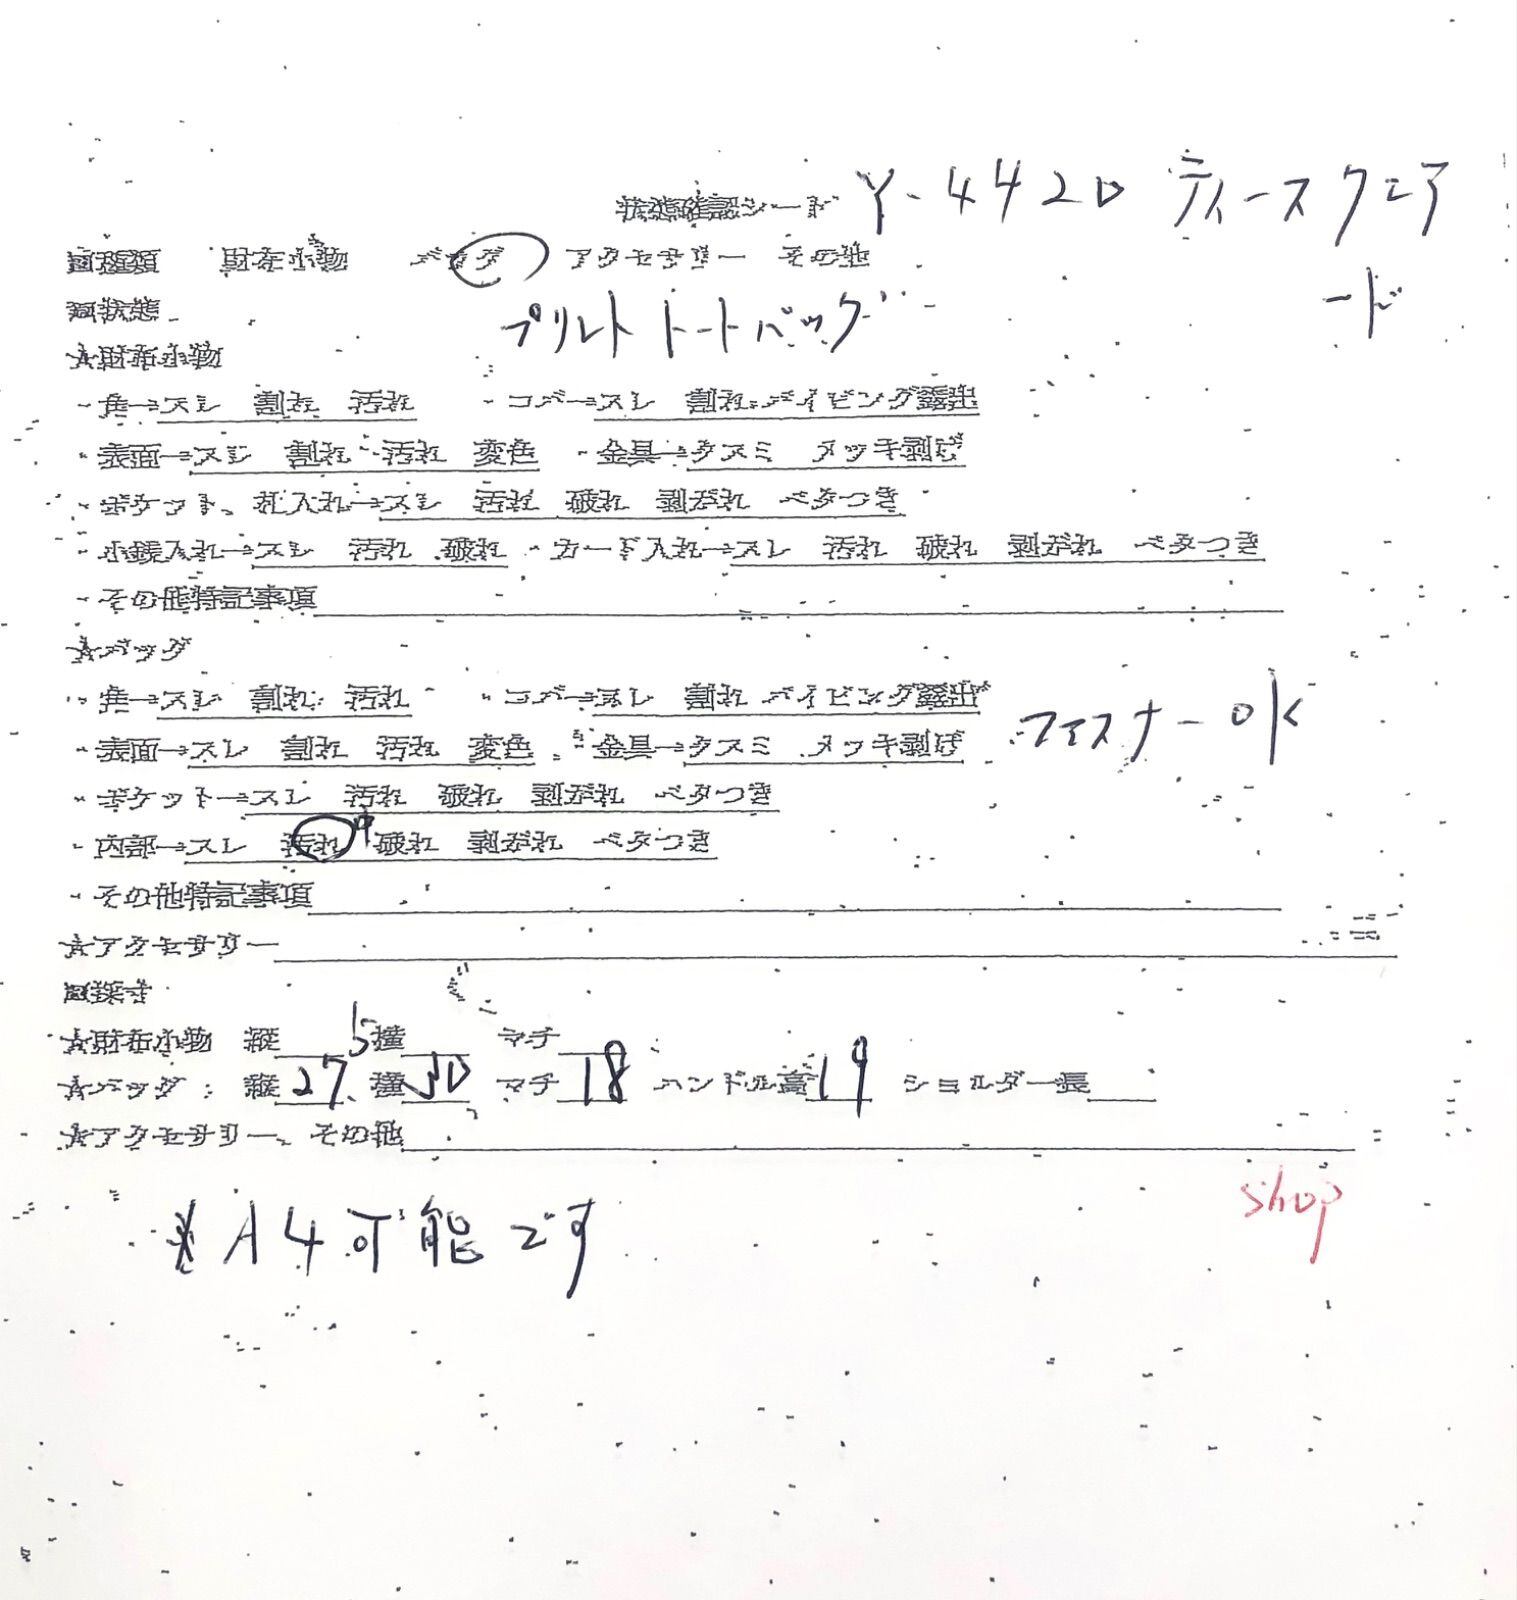 状態確認シート Y-4420 ディースクエア
ード
■種類 財布小物 バッグ アクセサリー その他
■状態 プリント トートバッグ
★財布小物
・角→スレ 割れ 汚れ ・コバ→スレ 割れ パイピング露出
・表面→スレ 割れ 汚れ 変色 ・金具→クスミ メッキ剥げ
・ポケット、札入れ→スレ 汚れ 破れ 剥がれ ベタつき
・小銭入れ→スレ 汚れ 破れ ・カード入れ→スレ 汚れ 破れ 剥がれ ベタつき
・その他特記事項
★バッグ
・角→スレ 割れ 汚れ ・コバ→スレ 割れ パイピング露出
・表面→スレ 割れ 汚れ 変色 ・金具→クスミ メッキ剥げ ファスナーOK
・ポケット→スレ 汚れ 破れ 剥がれ ベタつき
・内部→スレ 汚れ 破れ 剥がれ ベタつき
・その他特記事項
★アクセサリー
■採寸
★財布小物 縦 横 マチ
★バッグ 縦 27.5 横 30 マチ 18 ハンドル高 19 ショルダー長
★アクセサリー、その他
shop
※A4可能です